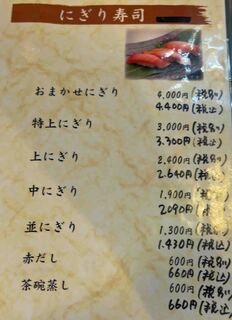 にぎり寿司
おまかせにぎり 4,000円(税別)
4,400円(税込)
特上にぎり 3,000円(税別)
3,300円(税込)
上にぎり 2,400円(税別)
2,640円(税込)
中にぎり 1,900円(税
2090円(
並にぎり 1,300円(税別)
1,430円(税込)
赤だし 600円(税別)
660円(税込)
茶碗蒸し 600円(税別)
660円(税込)